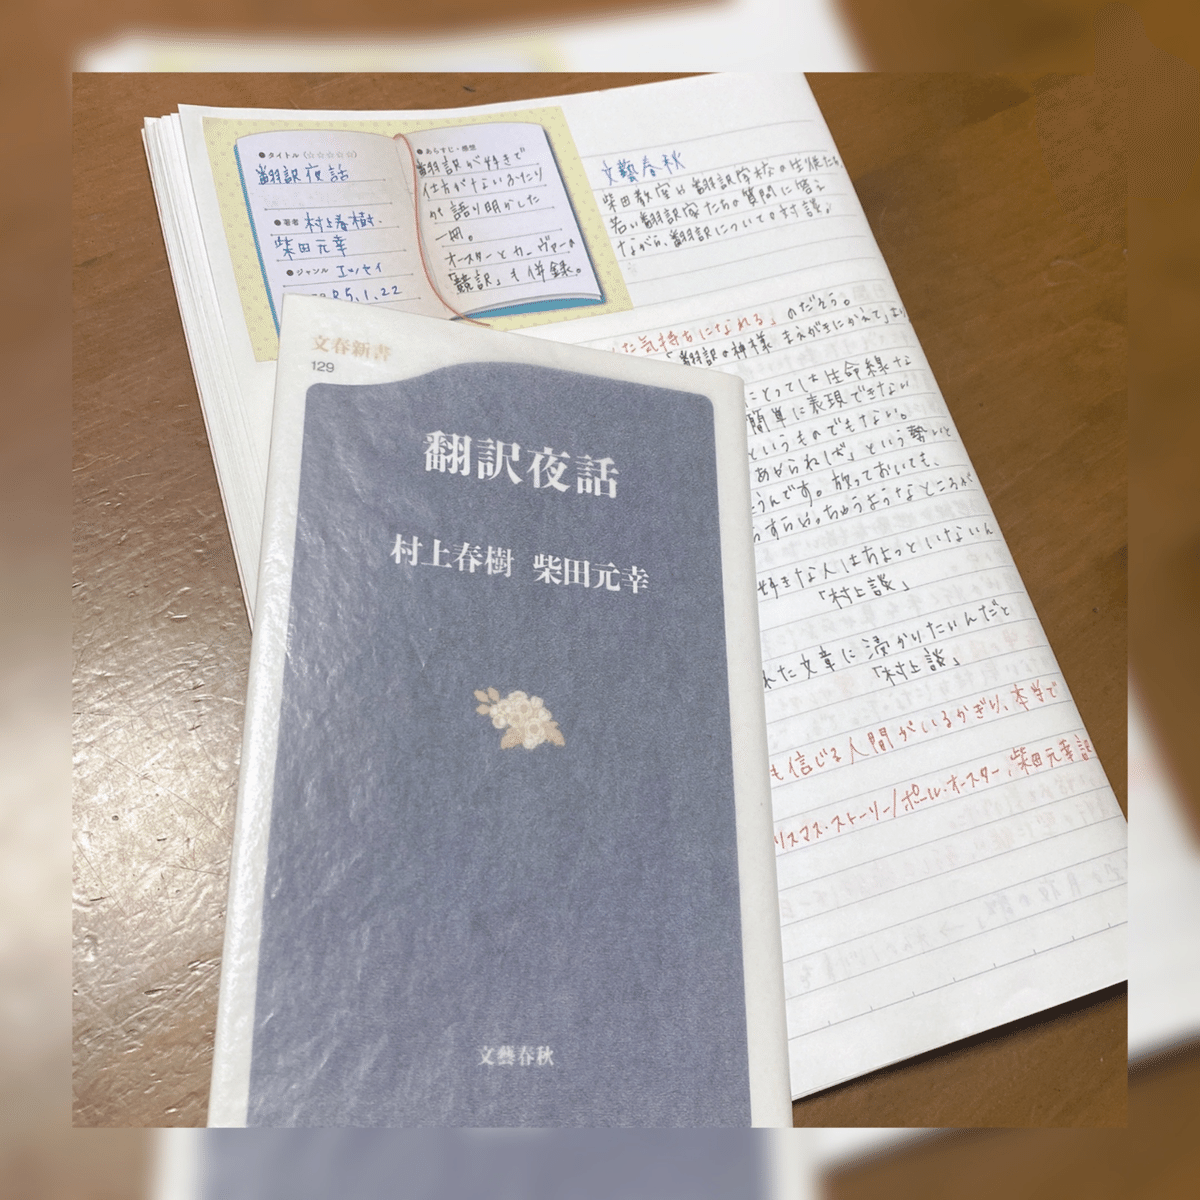 ●タイトル(☆☆☆☆☆)
翻訳夜話
●著者 村上春樹.
柴田元幸
●ジャンル エッセイ
R5.1.22
●あらすじ・感想
翻訳が好きで
仕方がないふたり
が語り明かした
一冊。
オースターとカーヴァーの
「競訳」も併録。
文藝春秋
柴田教室は翻訳学校の生徒たち
若い翻訳家たちの質問に答え
ながら、翻訳についての対談♪
た気持ちになれる」のだそう。
「翻訳の神様 まえがきにかえて」より
にとっては生命線な
簡単に表現できない
というものでもない。
あからねば」という勢いと
うんです。放っておいても、
ちゅうようなところが
好きな人はちょっといないん
「村上談」
れた文章に浸かりたいんだと
「村上談」
も信じる人間がいるかぎり、本当で
リスマス・ストーリー/ポール・オースター,柴田元幸訳
文春新書
129
翻訳夜話
村上春樹 柴田元幸
文藝春秋